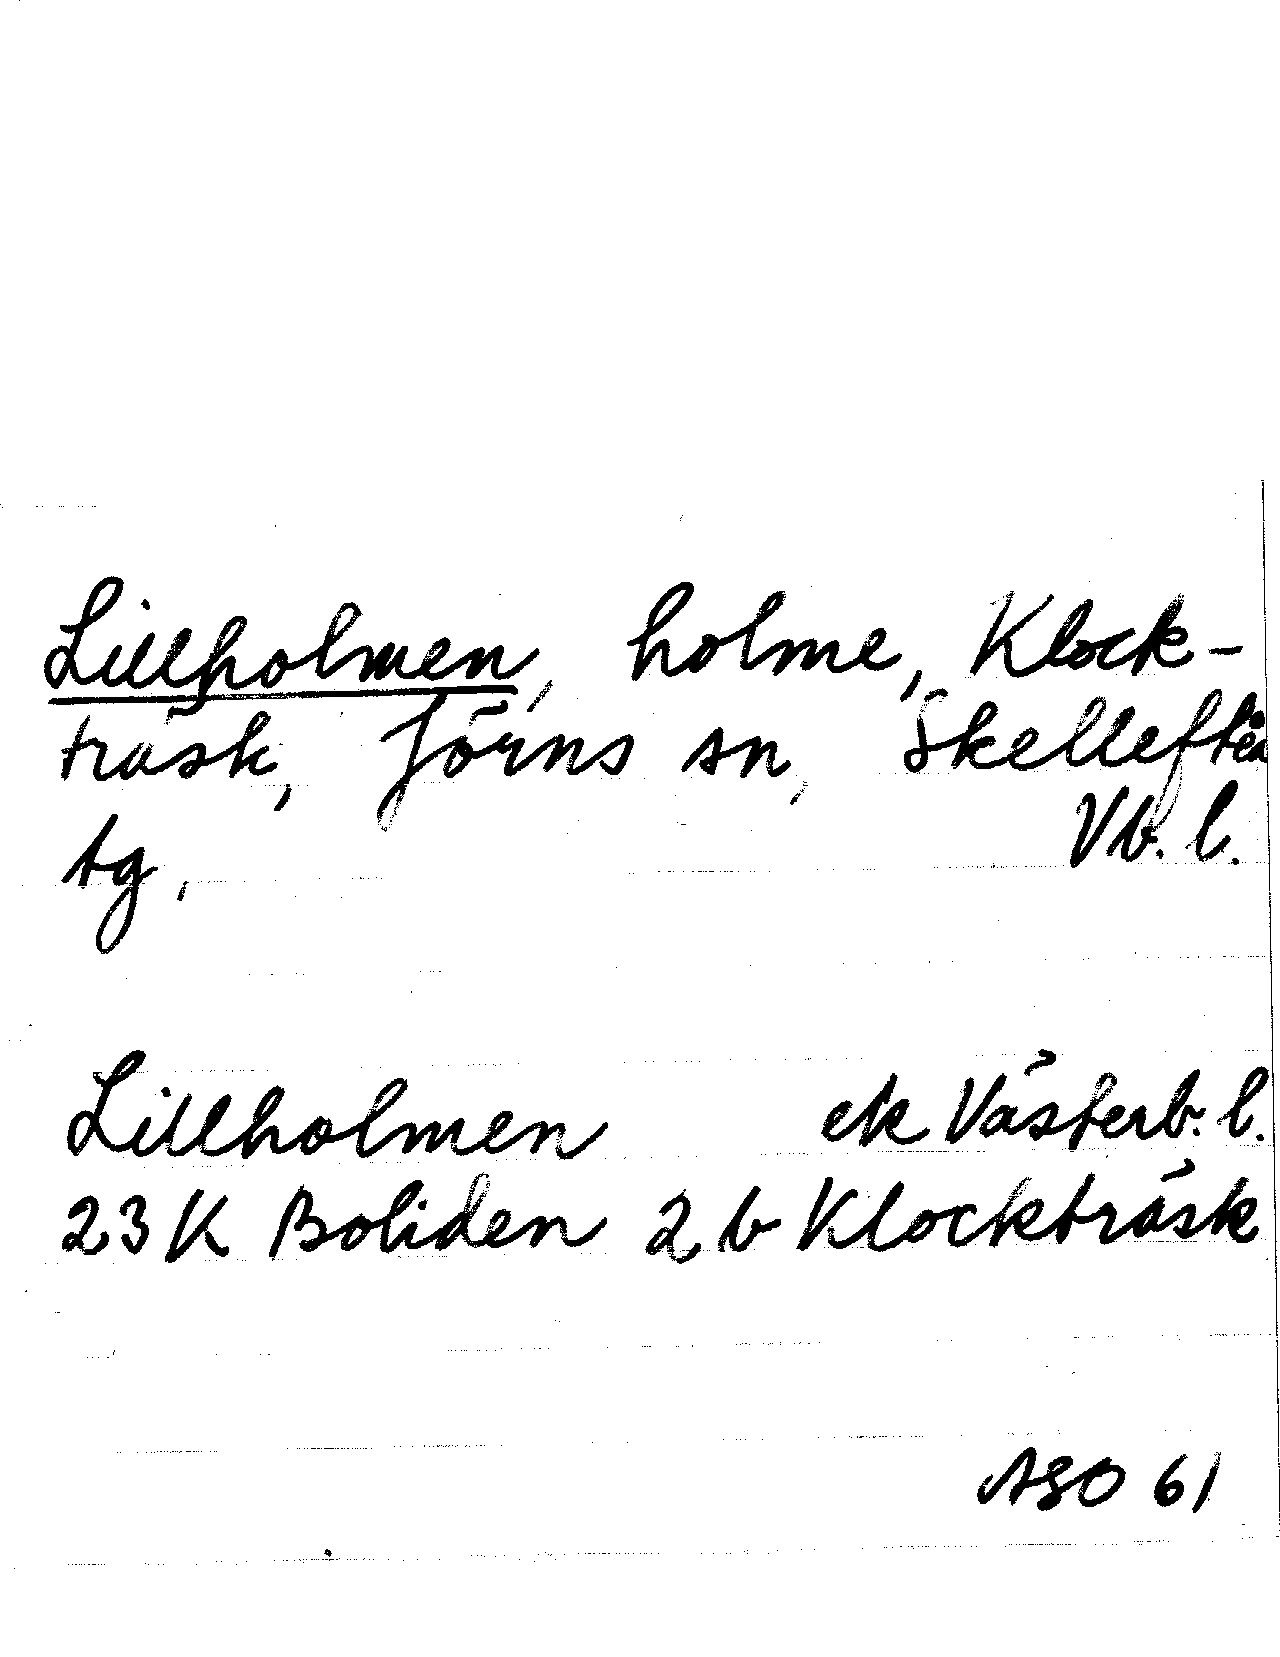 Lillholmen, holme, Klock-
träsk, Jörns sn, Skellefteå
tg, Vb. l.
Lillholmen ek Västerb. l.
23 K Boliden 2 b Klockträsk
ASO 61